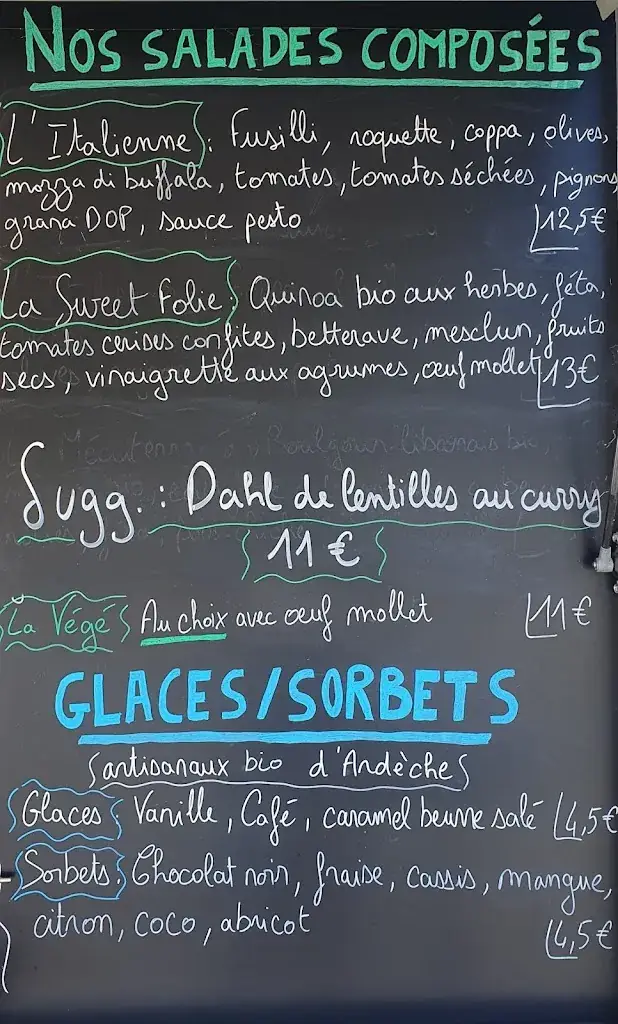 NOS SALADES COMPOSÉES
L'Italienne : Fusilli, roquette, coppa, olives,
mozza di buffala, tomates, tomates séchées, pignons
grana DOP, sauce pesto 12,5€
La Sweet Folie : Quinoa bio aux herbes, féta,
tomates cerises confites, betterave, mesclun, fruits
secs, vinaigrette aux agrumes, œuf mollet 13€
Sugg. : Dahl de lentilles au curry
11 €
La Végé Au choix avec œuf mollet 11€
GLACES/SORBETS
artisanaux bio d'Ardèche
Glaces : Vanille, Café, caramel beurre salé 4,5€
Sorbets : Chocolat noir, fraise, cassis, mangue,
citron, coco, abricot 4,5€